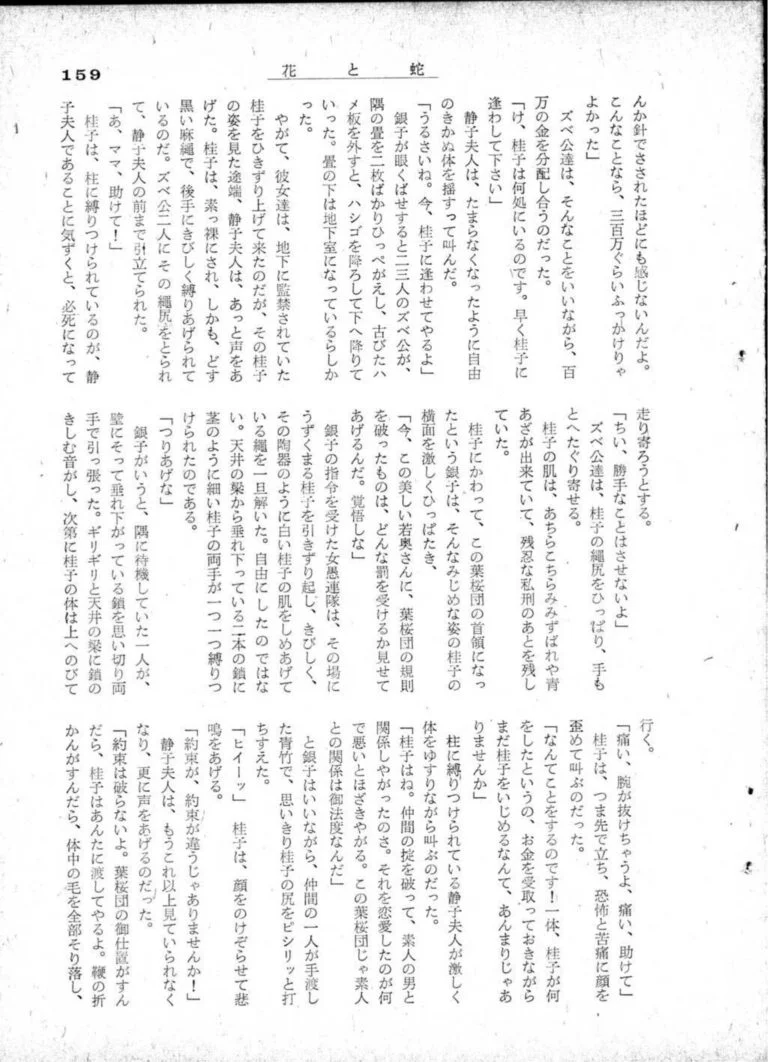 159
花と蛇
んか針でさされたほどにも感じないんだよ。
こんなことなら、三百万ぐらいふっかけりゃ
よかった」
ズベ公達は、そんなことをいいながら、百
万の金を分配し合うのだった。
「け、桂子は何処にいるのです。早く桂子に
逢わして下さい」
静子夫人は、たまらなくなったように自由
のきかぬ体を揺すって叫んだ。
「うるさいね。今、桂子に逢わせてやるよ」
銀子が眼くばせすると二三人のズベ公が、
隅の畳を二枚ばかりひっぺがえし、古びたハ
メ板を外すと、ハシゴを降ろして下へ降りて
いった。畳の下は地下室になっているらしか
った。
やがて、彼女達は、地下に監禁されていた
桂子をひきずり上げて来たのだが、その桂子
の姿を見た途端、静子夫人は、あっと声をあ
げた。桂子は、素っ裸にされ、しかも、どす
黒い麻縄で、後手にきびしく縛りあげられて
いるのだ。ズベ公二人にその縄尻をとられ
て、静子夫人の前まで引立てられた。
「あ、ママ、助けて！」
桂子は、柱に縛りつけられているのが、静
子夫人であることに気ずくと、必死になって
走り寄ろうとする。
「ちい、勝手なことはさせないよ」
ズベ公達は、桂子の縄尻をひっぱり、手も
とへたぐり寄せる。
桂子の肌は、あちらこちらみみずばれや青
あざが出来ていて、残忍な私刑のあとを残し
ていた。
桂子にかわって、この葉桜団の首領になっ
たという銀子は、そんなみじめな姿の桂子の
横面を激しくひっぱたき、
「今、この美しい若奥さんに、葉桜団の規則
を破ったものは、どんな罰を受けるか見せて
あげるんだ。覚悟しな」
銀子の指令を受けた女愚連隊は、その場に
うずくまる桂子を引きずり起し、きびしく、
その陶器のように白い桂子の肌をしめあげて
いる縄を一旦解いた。自由にしたのではな
い。天井の梁から垂れ下っている二本の鎖に
茎のように細い桂子の両手が一つ一つ縛りつ
けられたのである。
「つりあげな」
銀子がいうと、隅に待機していた一人が、
壁にそって垂れ下がっている鎖を思い切り両
手で引っ張った。ギリギリと天井の梁に鎖の
きしむ音がし、次第に桂子の体は上へのびて
行く。
「痛い、腕が抜けちゃうよ、痛い、助けて」
桂子は、つま先で立ち、恐怖と苦痛に顔を
歪めて叫ぶのだった。
「なんてことをするのです！一体、桂子が何
をしたというの、お金を受取っておきながら
まだ桂子をいじめるなんて、あんまりじゃあ
りませんか」
柱に縛りつけられている静子夫人が激しく
体をゆすりながら叫ぶのだった。
「桂子はね。仲間の掟を破って、素人の男と
関係しやがったのさ。それを恋愛したのが何
で悪いとほざきやがる。この葉桜団じゃ素人
との関係は御法度なんだ」
と銀子はいいながら、仲間の一人が手渡し
た青竹で、思いきり桂子の尻をピシリッと打
ちすえた。
「ヒイーッ」　桂子は、顔をのけぞらせて悲
鳴をあげる。
「約束が、約束が違うじゃありませんか！」
静子夫人は、もうこれ以上見ていられなく
なり、更に声をあげるのだった。
「約束は破らないよ。葉桜団の御仕置がすん
だら、桂子はあんたに渡してやるよ。鞭の折
かんがすんだら、体中の毛を全部そり落し、